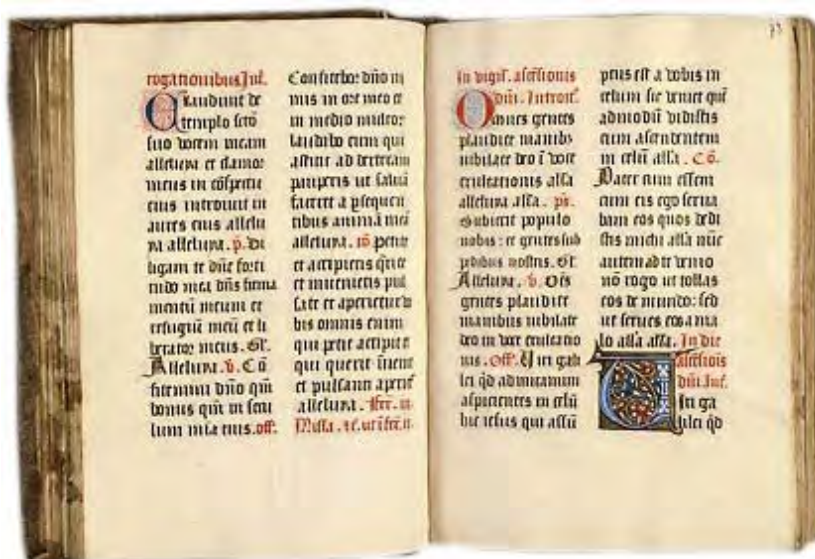 rogationibus Int.
Exaudiuit de
templo sctō
suo vocem meam
alleluya et clamor
meus in cōspectu
eius introiuit in
aures eius allelu
ya alleluya. p̄. Di
ligam te dn̄e forti
tudo mea dn̄s firma
mentū meum et
refugiū meū et li
berator meus. Gl'.
Alleluya. v̄. Cō
fitemini dn̄o qm̄
bonus qm̄ in secu
lum mīa eius. off.
Confitebor dn̄o ni
mis in ore meo et
in medio multor
laudabo eum qui
astitit ad dexteram
pauperis ut saluā
faceret a psequen
tibus animā meā
alleluya. cō petite
et accipietis q̄rite
et inuenietis pul
sate et aperietur vo
bis omnis enim
qui petit accipit et
qui querit inuenit
et pulsanti aperiet
alleluya.
In vigil. ascēsionis
dn̄i. Introit.
Omnes gentes
plaudite manibꝫ
iubilate deo ī voce
exultationis alla
alleluya alla. ps.
Subiecit populo
nobis : et gentes sub
pedibus nostris. Gl'.
Alleluya. v̄. Oēs
gentes plaudite
manibus iubilate
deo in voce exultatio
nis. Off. Viri gali
lei qd admiramini
aspicientes in celū
hic iesus qui assū
ptus est a vobis in
celum sic veniet quē
admodū vidistis
eum ascendentem
in celū alla. Cō.
Pater cum essem
cum eis ego serua
bam eos quos dedi
stis michi alla nūc
autem ad te venio
nō rogo ut tollas
eos de mundo: sed
ut serues eos a ma
lo alla alla. In die
ascēsiois
dn̄i. Int.
iri ga
lilei qd